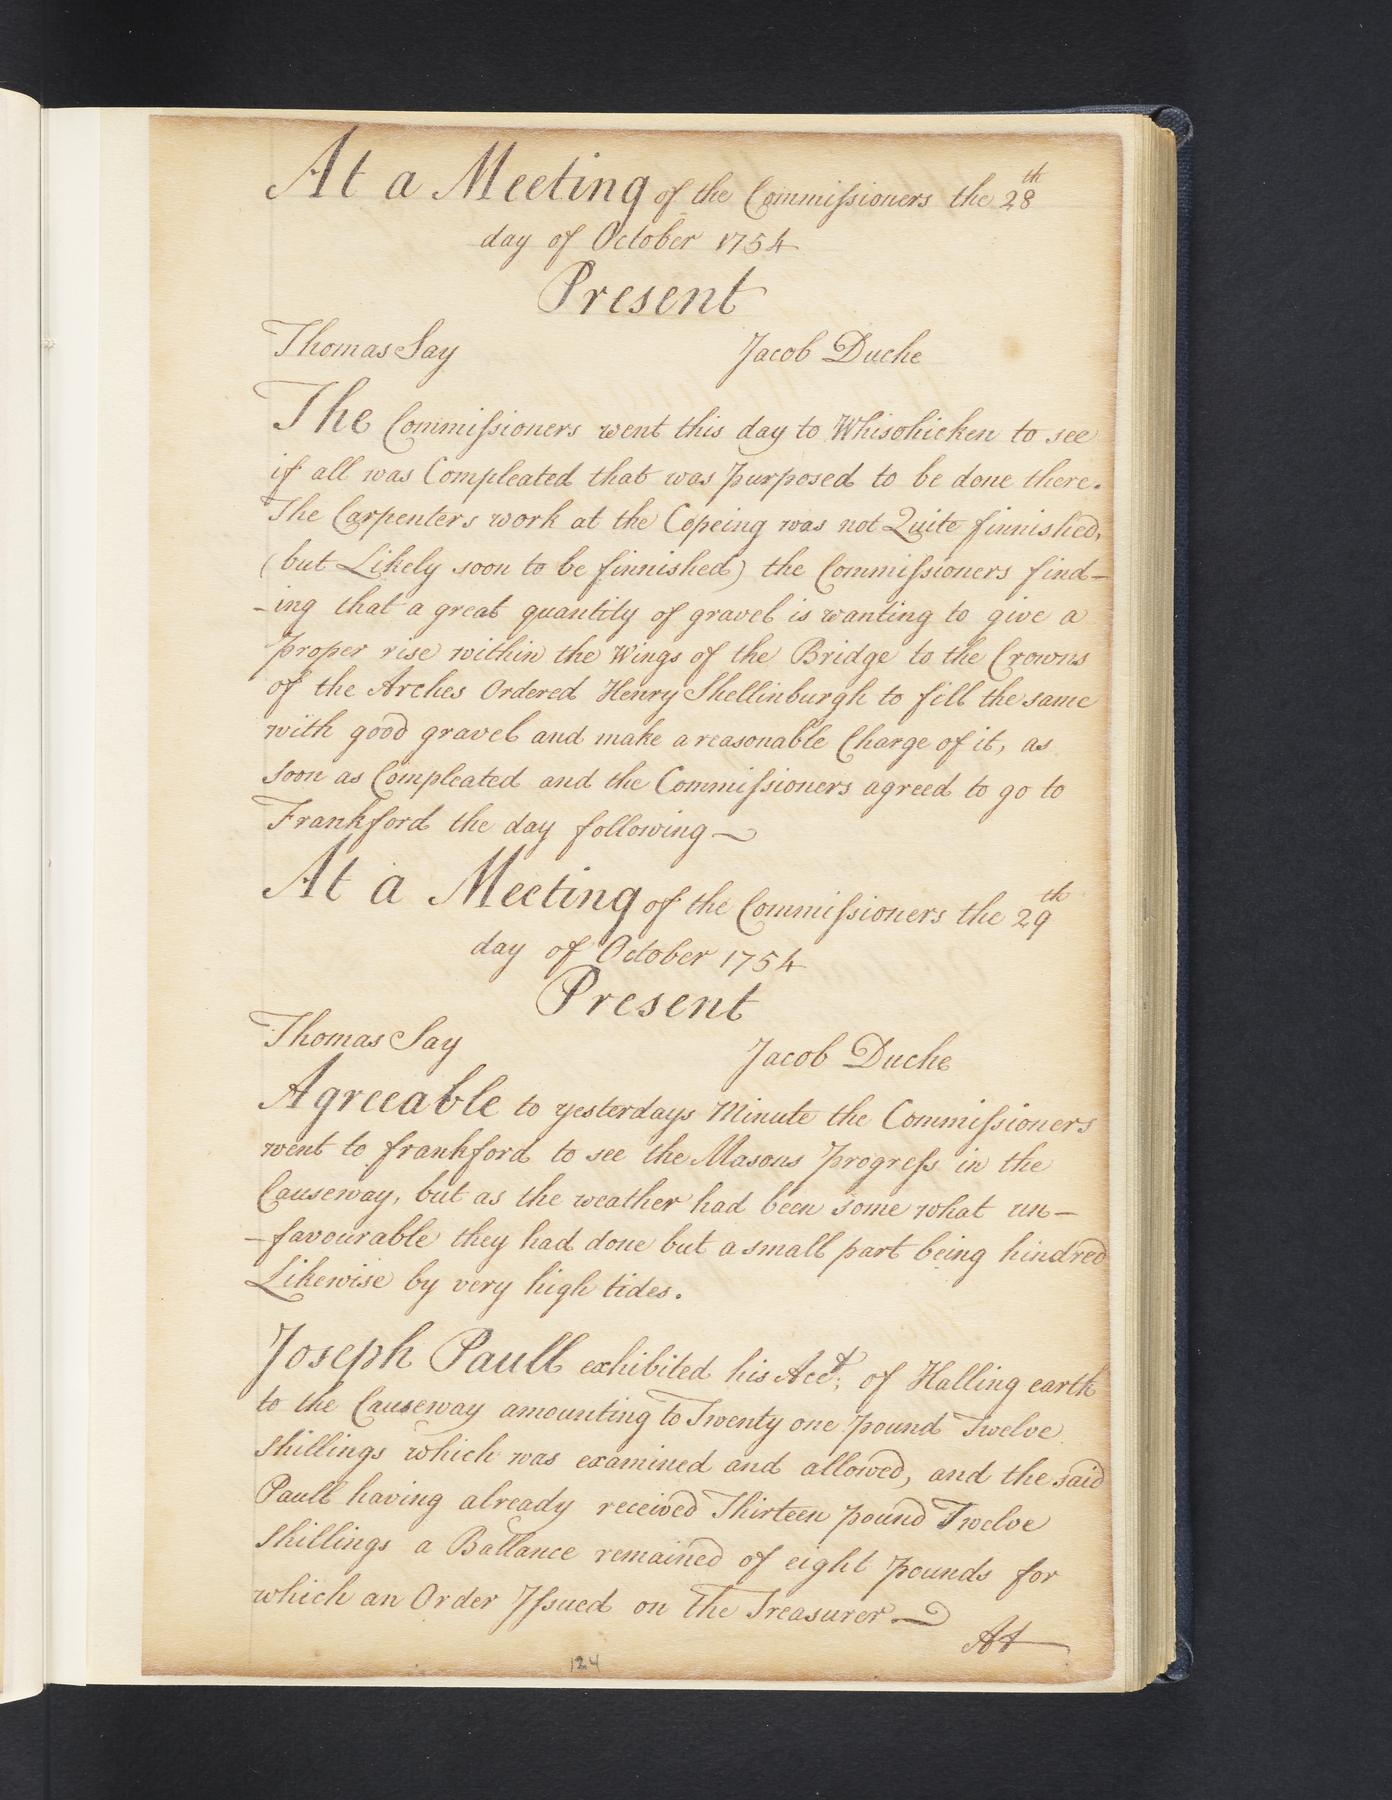 At a Meeting of the Commiſsioners the 28th
day of October 1754
Present
Thomas Say Jacob Duche
The Commiſsioners went this day to Whisohicken to see
if all was Compleated that was purposed to be done there.
The Carpenters work at the Copeing was not Quite finnished,
(but Likely soon to be finnished) the Commiſsioners find-
-ing that a great quantity of gravel is wanting to give a
proper rise within the Wings of the Bridge to the Crowns
of the Arches Ordered Henry Shellinburgh to fill the same
with good gravel and make a reasonable Charge of it, as
soon as Compleated and the Commiſsioners agreed to go to
Frankford the day following
At a Meeting of the Commiſsioners the 29th
day of October 1754
Present
Thomas Say Jacob Duche
Agreeable to yesterdays Minute the Commiſsioners
went to frankford to see the Masons progreſs in the
Causeway, but as the weather had been some what un-
-favourable they had done but a small part being hindred
Likewise by very high tides.
Joseph Paull exhibited his Acct; of Halling earth
to the Causeway amounting to Twenty one pound Twelve
shillings which was examined and allowed, and the said
Paull having already received Thirteen pound Twelve
shillings a Ballance remained of eight pounds for
which an Order Iſsued on the Treasurer
At
124